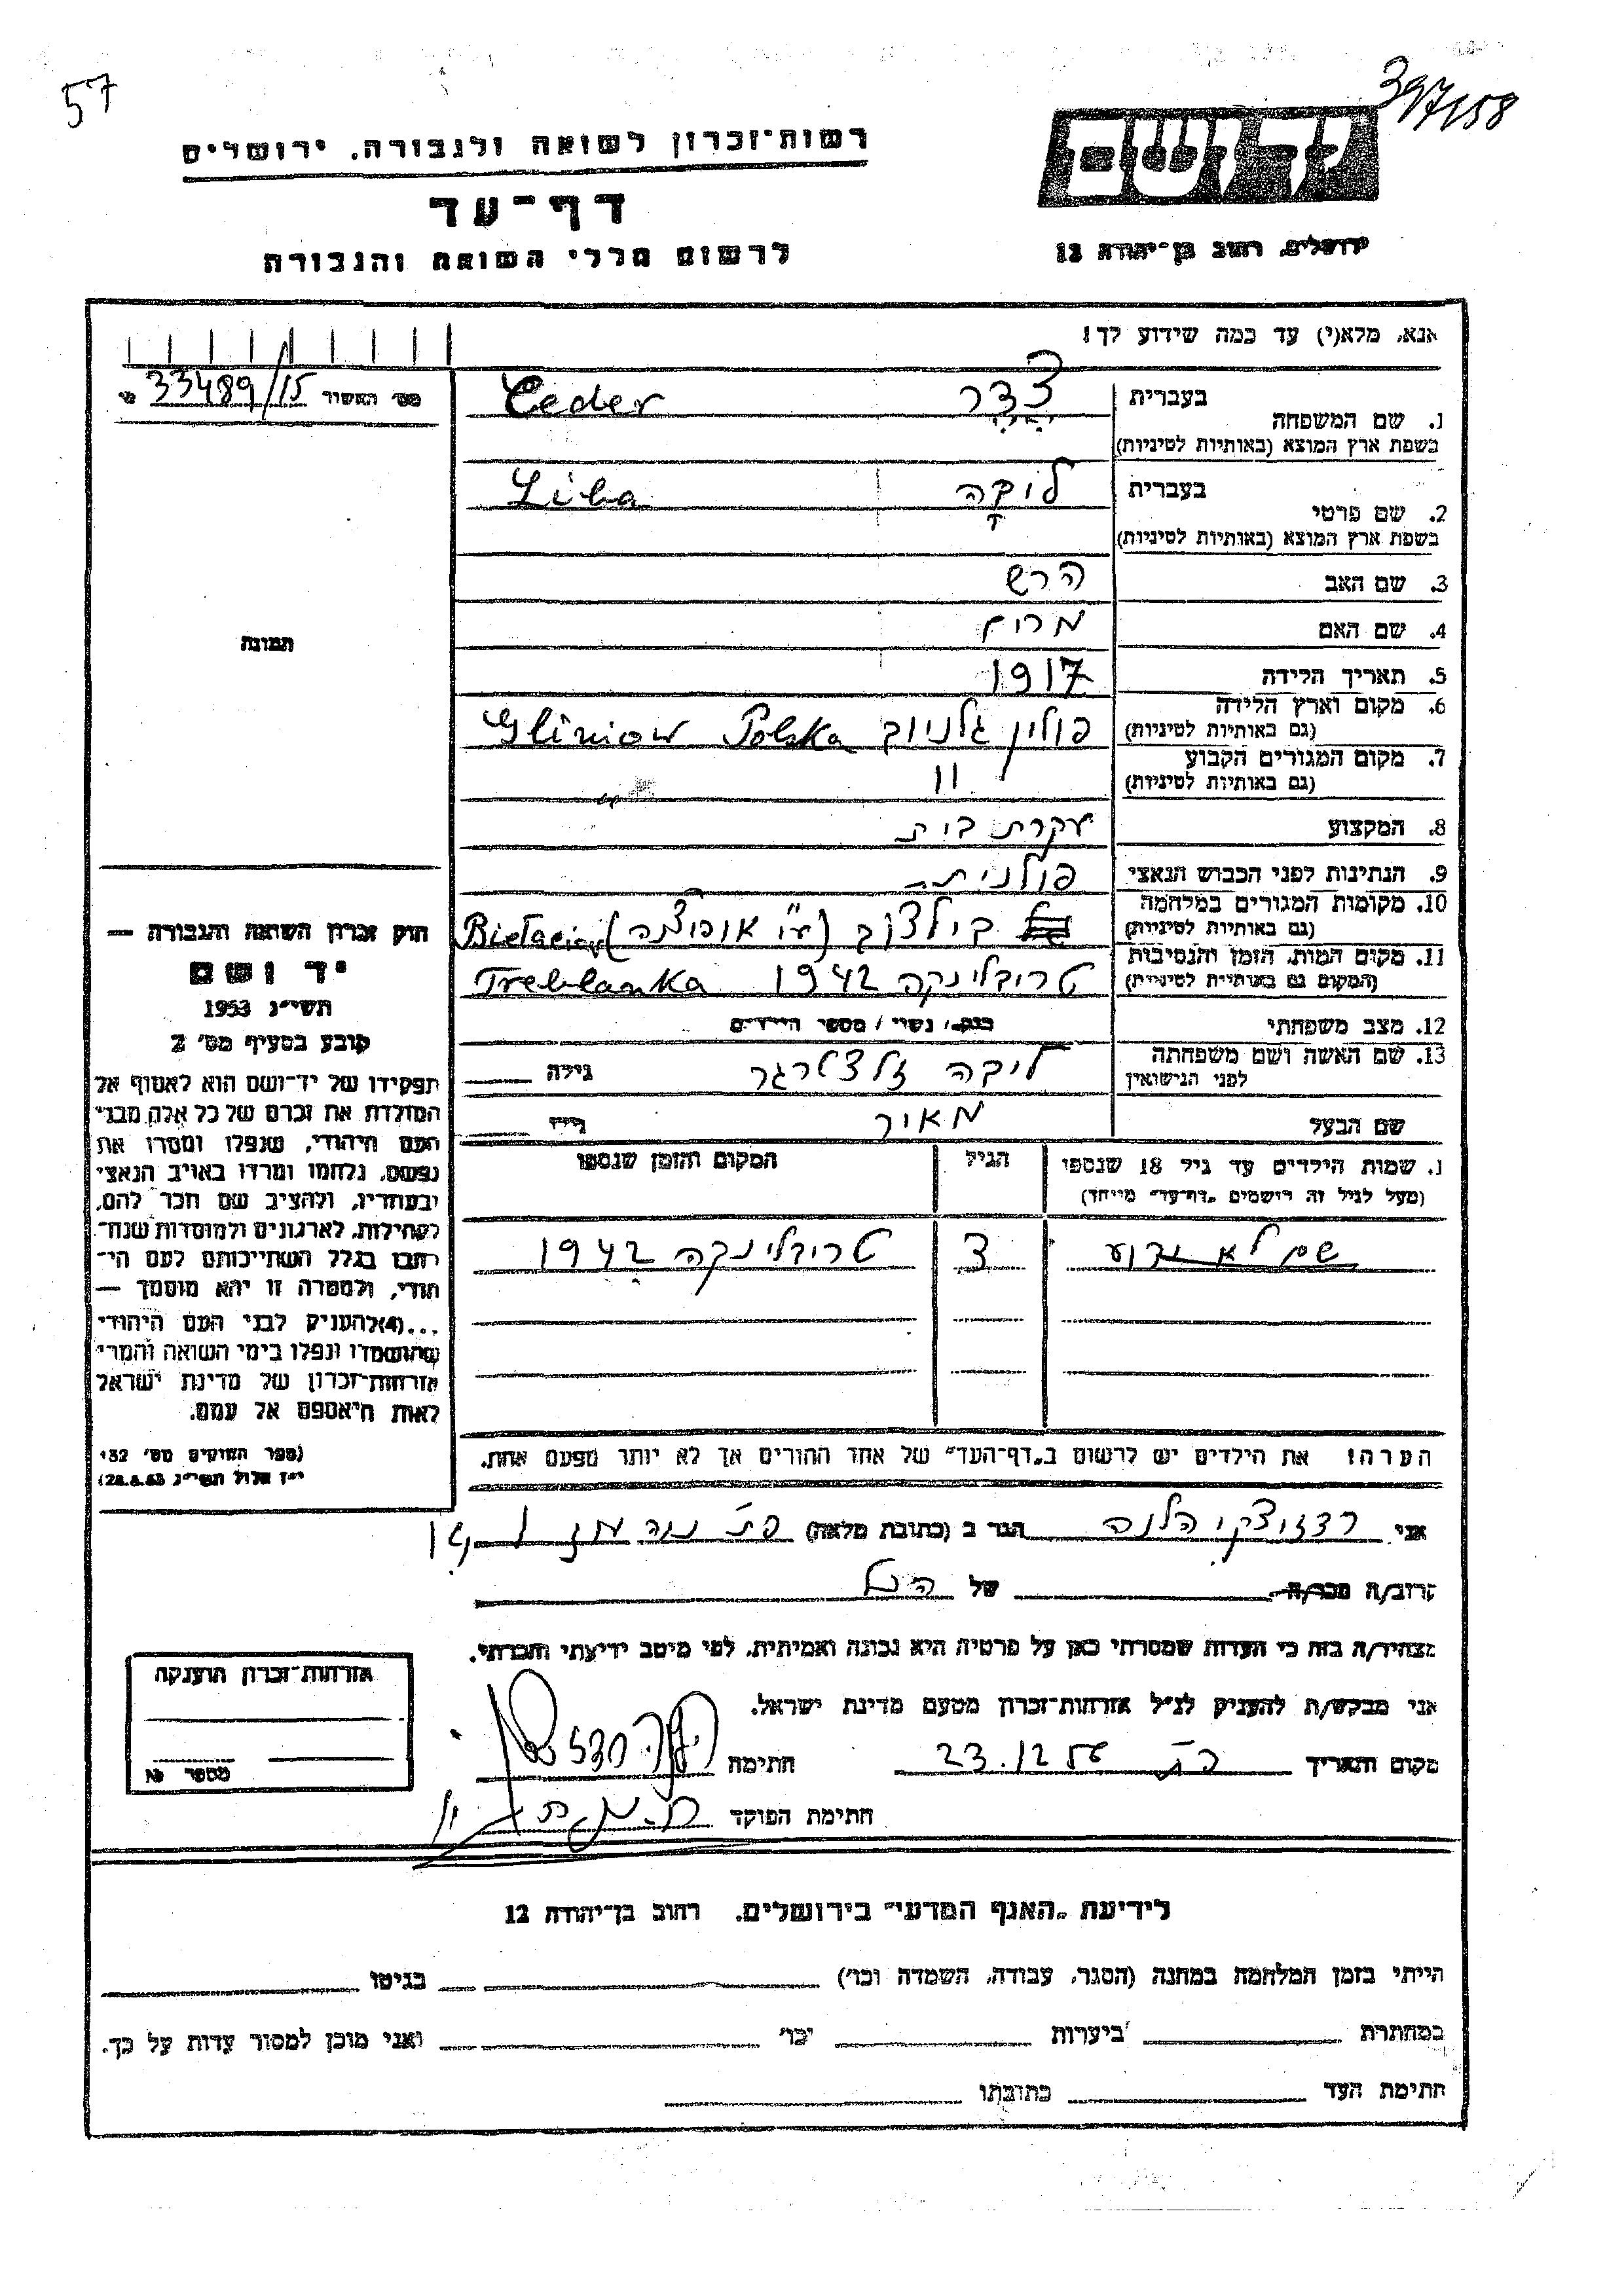 57
397/158
יד ושם
רשות־זכרון לשואה ולגבורה, ירושלים
דף־עד
לרשום חללי השואה והגבורה
ירושלים, רחוב בן־יהודה 12
אנא, מלא(י) עד כמה שידוע לך!
מס׳ האשור 33489/15
בעברית צדר Ceder
1. שם המשפחה
בשפת ארץ המוצא (באותיות לטיניות)
בעברית ליבה Liba
2. שם פרטי
בשפת ארץ המוצא (באותיות לטיניות)
3. שם האב הרש
4. שם האם
5. תאריך הלידה 1917
6. מקום וארץ הלידה
(גם באותיות לטיניות) פולין גלניוב Gliniow Polska
7. מקום המגורים הקבוע
(גם באותיות לטיניות) "
8. המקצוע עקרת בית
9. הנתינות לפני הכבוש הנאצי פולנית
10. מקומות המגורים במלחמה
(גם באותיות לטיניות) (ע״י אופוצ׳נה)
11. מקום המות, הזמן והנסיבות
(המקום גם באותיות לטיניות) טריבלינקה 1942 Treblanka
12. מצב משפחתי נשוי / מספר הילדים
13. שם האשה ושם משפחתה
לפני הנישואין ליבה גילה
שם הבעל מאיר גילו
תמונה
חוק זכרון השואה והגבורה —
יד ושם
תשי״ג 1953
קובע בסעיף מס׳ 2
תפקידו של יד־ושם הוא לאסוף אל
המולדת את זכרם של כל אלה מבני
העם היהודי, שנפלו ומסרו את
נפשם, נלחמו ומרדו באויב הנאצי
ובעוזריו, ולהציב שם וזכר להם,
לקהילות, לארגונים ולמוסדות שנח־
רבו בגלל השתייכותם לעם הי־
הודי, ולמטרה זו יהא מוסמך —
...(4) להעניק לבני העם היהודי
שהושמדו ונפלו בימי השואה והמרי
אזרחות־זכרון של מדינת ישראל
לאות היאספם אל עמם.
(ספר החוקים מס׳ 132
י״ז אלול תשי״ג 28.8.53)
1. שמות הילדים עד גיל 18 שנספו הגיל המקום והזמן שנספו
(מעל לגיל זה רושמים „דף־עד״ מיוחד)
שם לא ידוע 3 טריבלינקה 1942
הערה! את הילדים יש לרשום ב„דף־העד״ של אחד ההורים אך לא יותר מפעם אחת.
אני הלנה הגר ב (כתובת מלאה)
קרוב/ה מכר/ה של הנ״ל
מצהיר/ה בזה כי העדות שמסרתי כאן על פרטיה היא נכונה ואמיתית, לפי מיטב ידיעתי והכרתי.
אני מבקש/ת להעניק לנ״ל אזרחות־זכרון מטעם מדינת ישראל.
מקום ותאריך 23.12.56 חתימה
חתימת הפוקד
אזרחות־זכרון הוענקה
מספר №
לידיעת „האגף המדעי״ בירושלים, רחוב בן־יהודה 12
הייתי בזמן המלחמה במחנה (הסגר, עבודה, השמדה וכו׳) בגיטו
במחתרת ביערות וכו׳ ואני מוכן למסור עדות על כך.
חתימת העד כתובתו